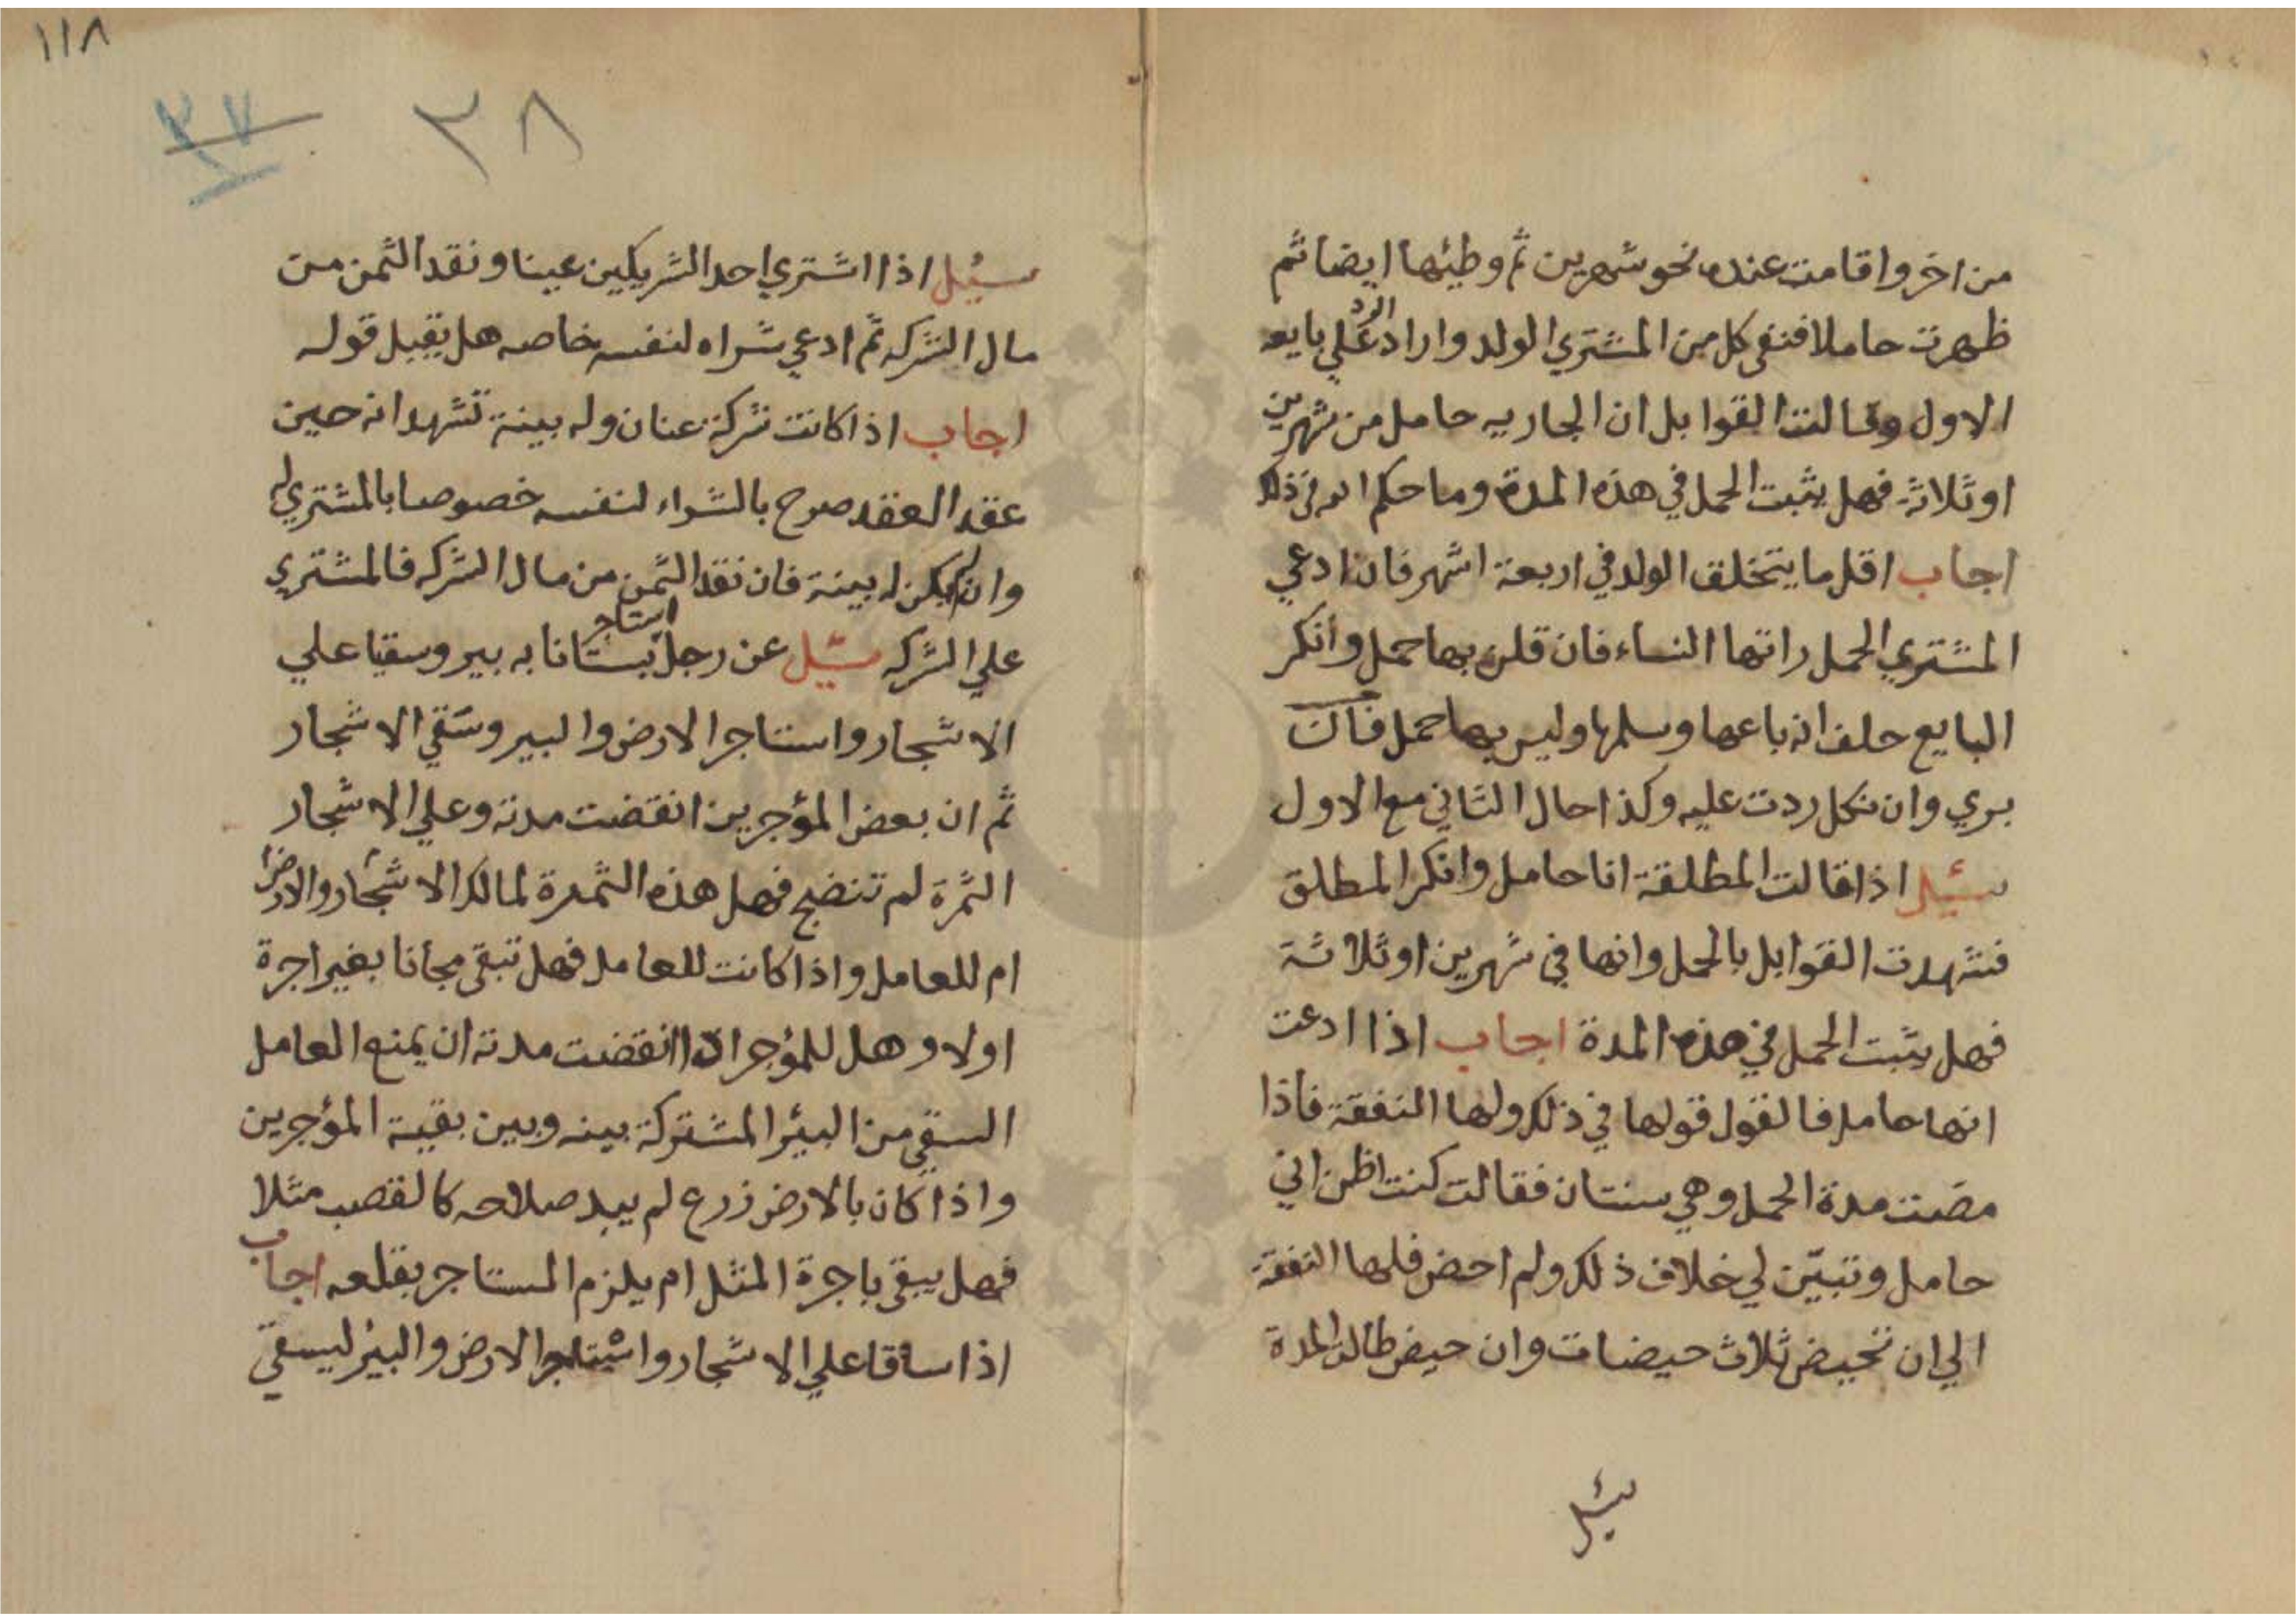 من اخر واقامت عنده نحو شهرين ثم وطيئها ايضا ثم
ظهرت حاملا فنفى كل من المشتري الولد واراد الرد علي بايعه
الاول وقالت القوابل ان الجاريه حامل من شهرين
او ثلاثة فهل يثبت الحمل في هذه المدة وما حكم الله في ذلك
اجاب اقل ما يتخلق الولد في اربعة اشهر فان ادعي
المشتري الحمل راتها النساء فان قلن بها حمل وانكر
البايع حلف انه باعها وسلمها وليس بها حمل فان حلف
بري وان نكل ردت عليه وكذا حال الثاني مع الاول
سئيل اذا قالت المطلقة انا حامل وانكر المطلق
فشهدت القوابل بالحمل وانها في شهرين او ثلاثة
فهل يثبت الحمل في هذه المدة اجاب اذا ادعت
انها حامل فالقول قولها في ذلك ولها النفقة فاذا
مضت مدة الحمل وهي سنتان فقالت كنت اظن اني
حامل وتبيّن لي خلاف ذلك ولم احض فلها النفقة
الي ان تحيض ثلاث حيضات وان حيض طالت المدة
سئيل
١١٨
٣٧
٣٨
سيُل اذا اشتري احد الشريكين عينا ونقد الثمن من
مال الشركه ثم ادعي شراه لنفسه خاصه هل يقبل قوله
اجاب اذا كانت شركة عنان وله بينة تشهد انه حين
عقد العقد صرح بالشراء لنفسه خصوصا بالمشتري له
وان لم يكن له بينة فان نقد الثمن من مال الشركه فالمشتري
علي الشركه سيُل عن رجل استاجر بستانا به بير وسقيا علي
الاشجار واستاجر الارض والبير وسَقي الاشجار
ثم ان بعض المؤجرين انقضت مدته وعلي الاشجار
الثمرة لم تنضج فهل هذه الثمرة لمالك الاشجار والارض
ام للعامل واذا كانت للعامل فهل تبقى مجانا بغير اجرة
اولا وهل للمؤجر اذا انقضت مدته ان يمنع العامل
السقي من البئر المشتركة بينه وبين بقية المؤجرين
واذا كان بالارض زرع لم يبد صلاحه كالقصب مثلا
فهل يبقى باجرة المثل ام يلزم المستاجر بقلعه اجاب
اذا ساقا علي الاشجار واستاجر الارض والبئر ليسقي